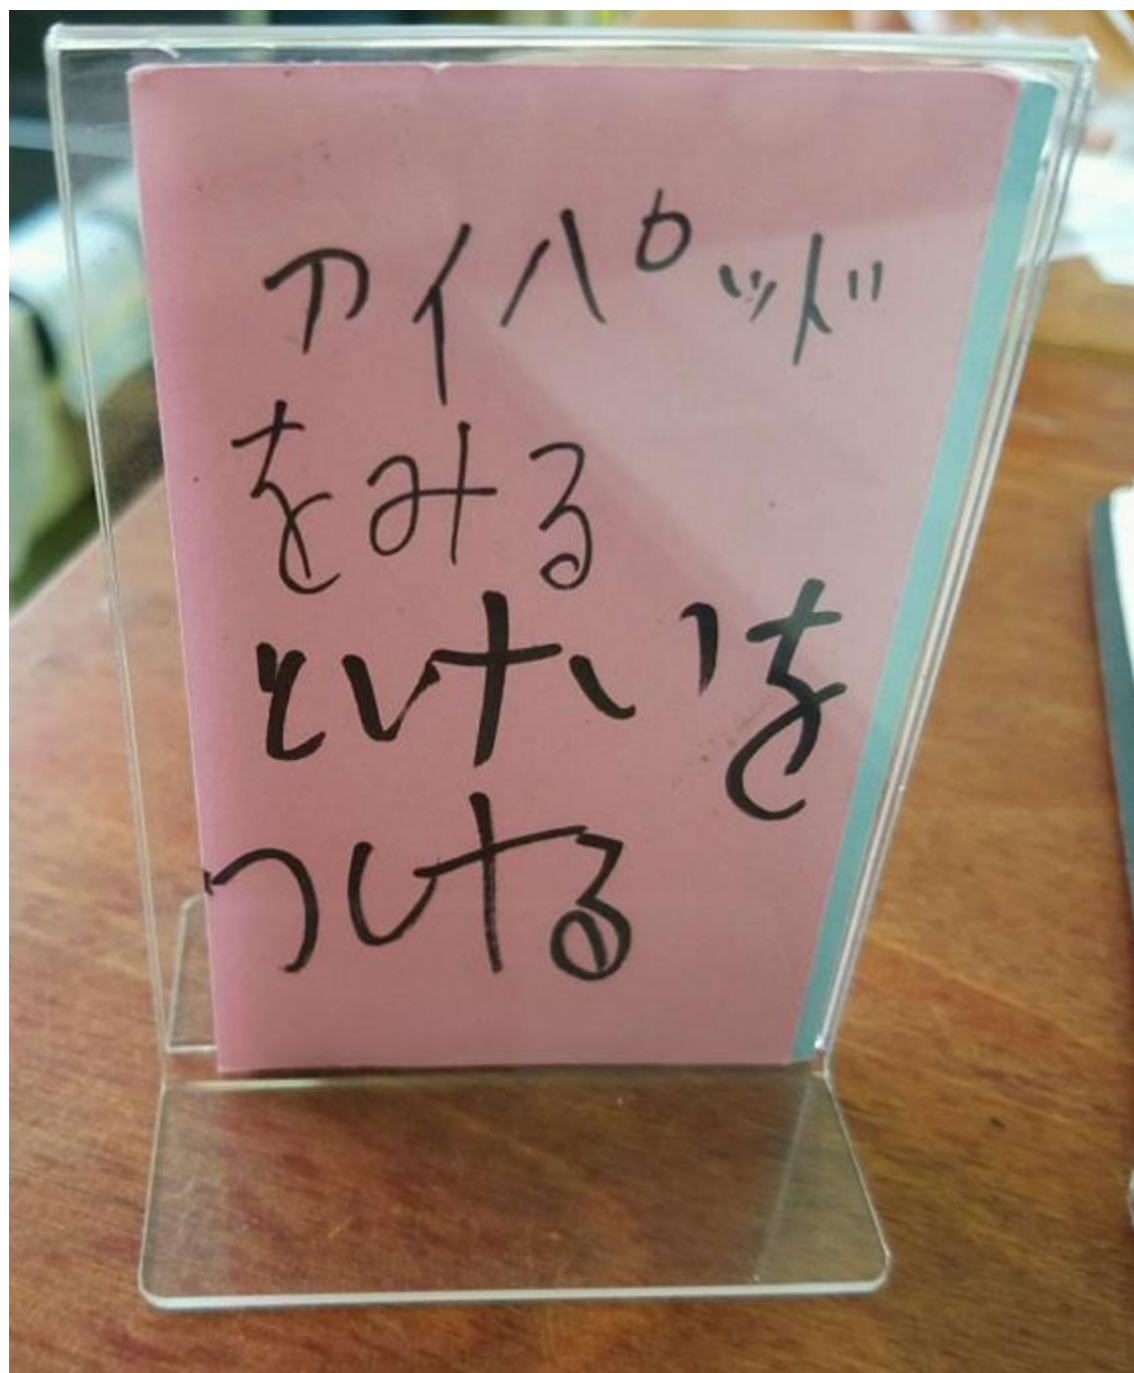 アイパッド
をみる
とけいを
つける